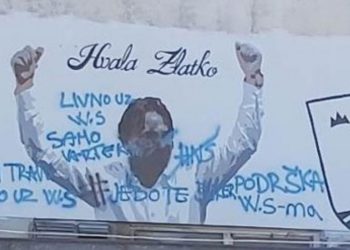 Hvala Zlatko
LIVNO UZ
W.S
SAMO
VARTEKS
#HNS
TRAVN
NO UZ W.S
#JEBO TE
PODRŠKA
W.S-ma